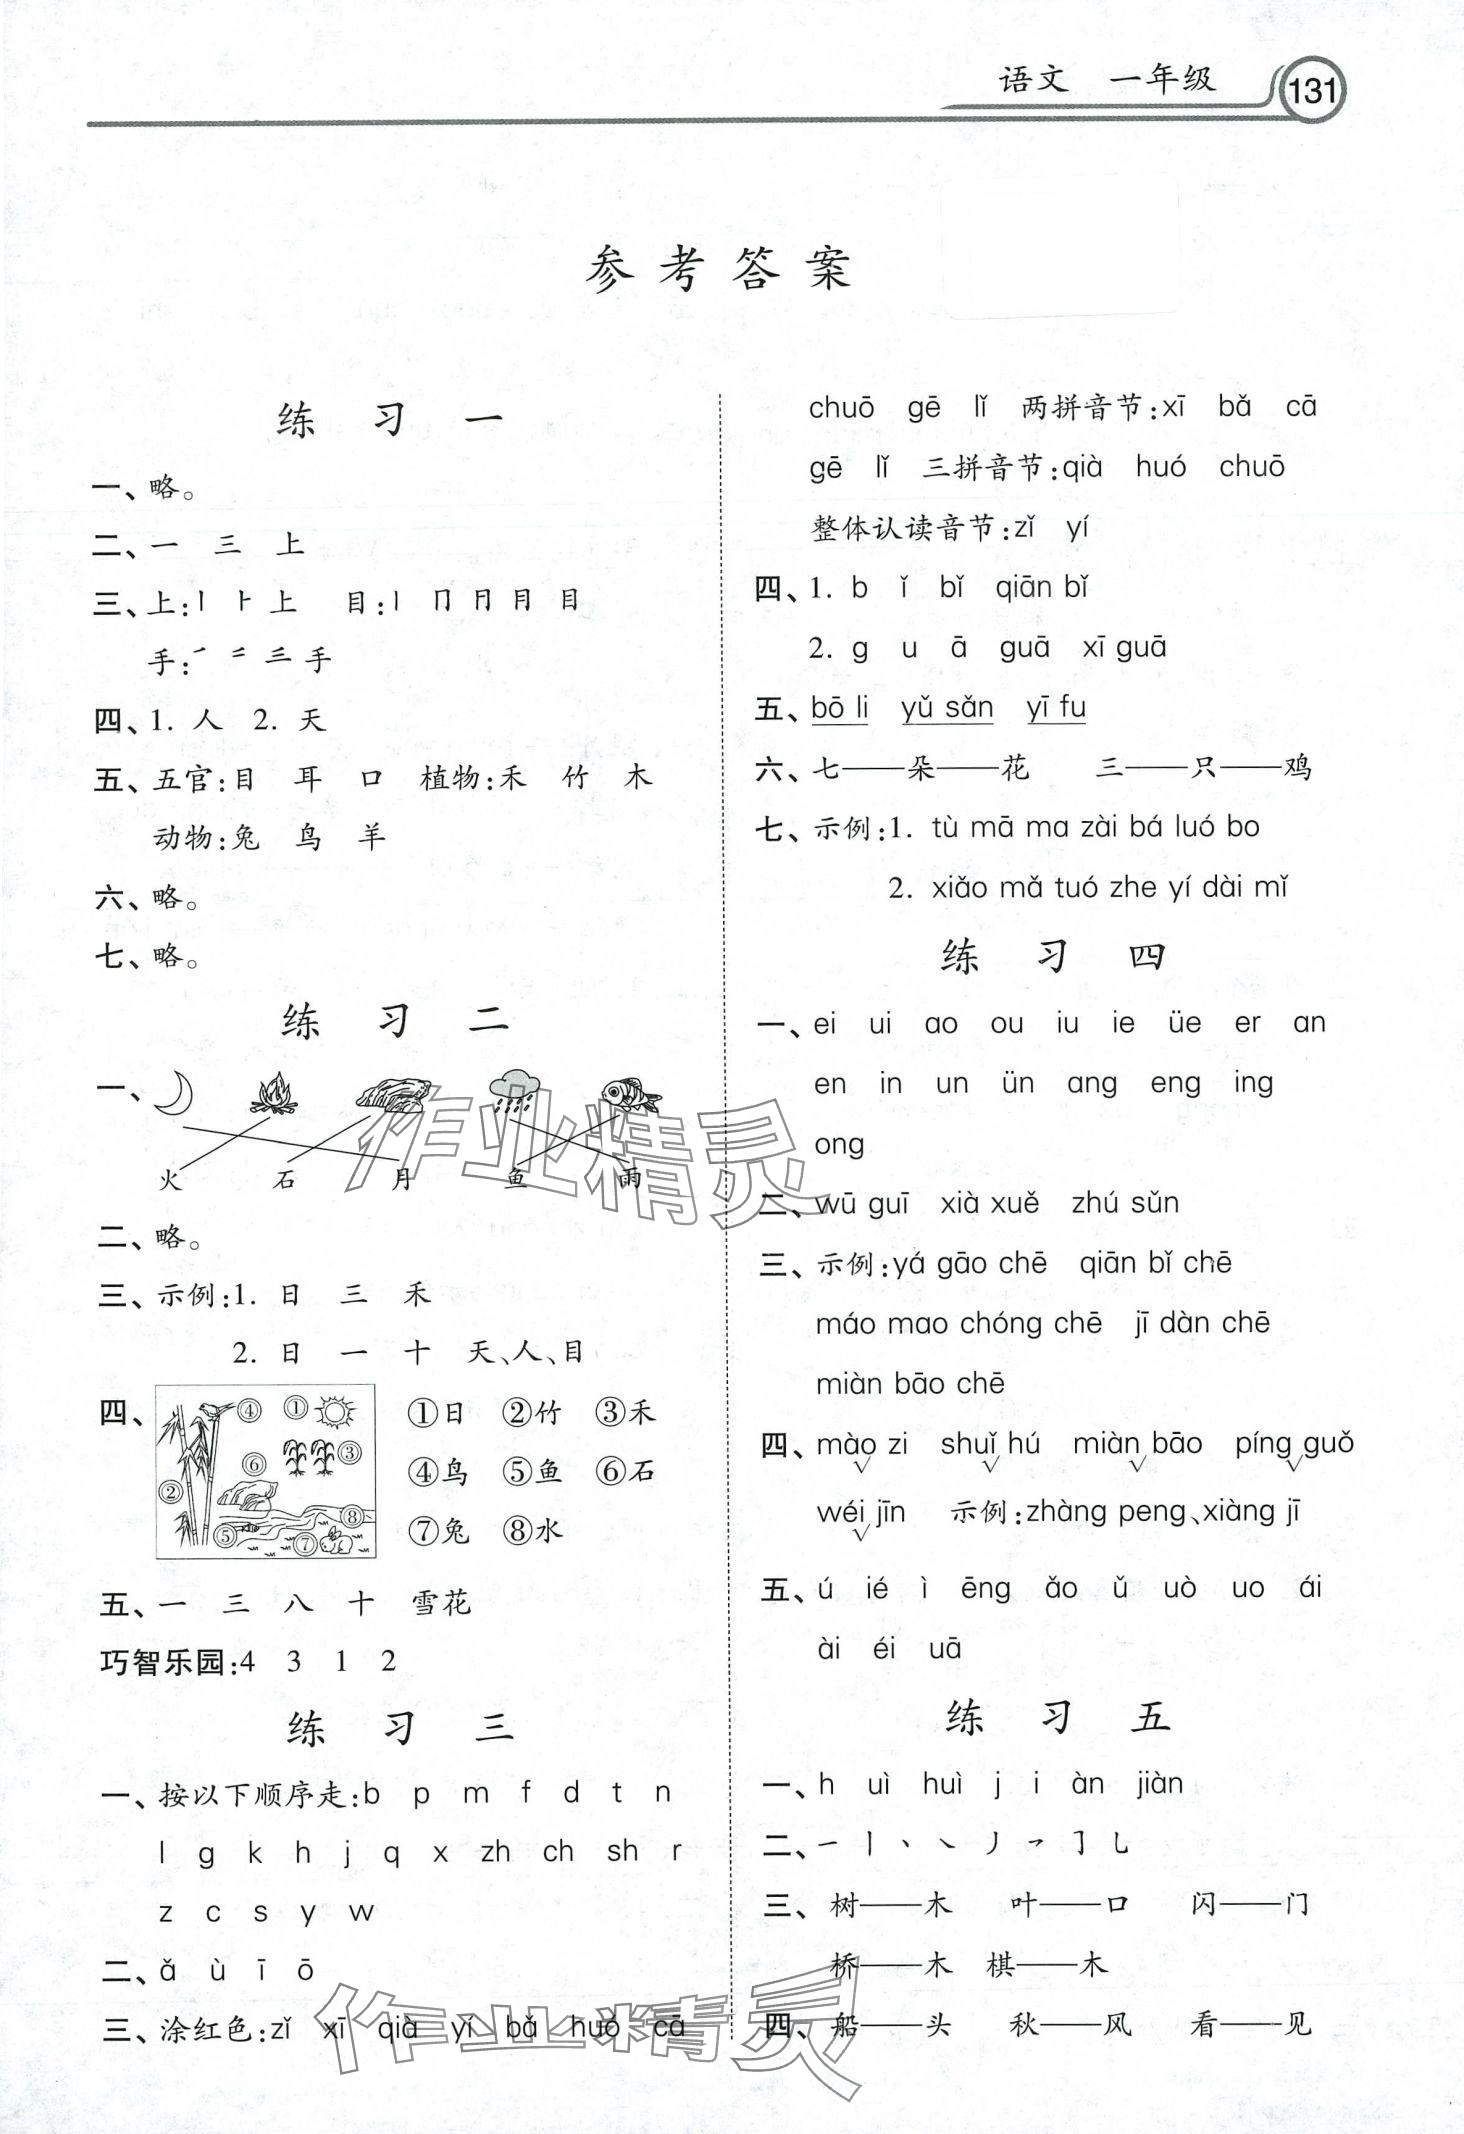 语文 一年级 131
参考答案
练习一
一、略。
二、一 三 上
三、上:丨 ⺊ 上 目:丨 冂 冃 月 目
手:㇒ 二 三 手
四、1. 人 2. 天
五、五官:目 耳 口 植物:禾 竹 木
动物:兔 鸟 羊
六、略。
七、略。
练习二
一、
火 石 月 鱼 雨
二、略。
三、示例:1. 日 三 禾
2. 日 一 十 天、人、目
四、
④ ① ③ ⑥ ② ⑧ ⑤ ⑦
①日 ②竹 ③禾
④鸟 ⑤鱼 ⑥石
⑦兔 ⑧水
五、一 三 八 十 雪花
巧智乐园:4 3 1 2
练习三
一、按以下顺序走:b p m f d t n
l g k h j q x zh ch sh r
z c s y w
二、ǎ ù ī ō
三、涂红色:zǐ xī qià yí bǎ huó cā
chuō gē lǐ 两拼音节:xī bǎ cā
gē lǐ 三拼音节:qià huó chuō
整体认读音节:zǐ yí
四、1. b ǐ bǐ qiān bǐ
2. g u ā guā xī guā
五、bō li yǔ sǎn yī fu
六、七——朵——花 三——只——鸡
七、示例:1. tù mā ma zài bá luó bo
2. xiǎo mǎ tuó zhe yí dài mǐ
练习四
一、ei ui ao ou iu ie üe er an
en in un ün ang eng ing
ong
二、wū guī xià xuě zhú sǔn
三、示例:yá gāo chē qiān bǐ chē
máo mao chóng chē jī dàn chē
miàn bāo chē
四、mào zi shuǐ hú miàn bāo píng guǒ
wéi jīn 示例:zhàng peng、xiàng jī
五、ú ié ì ēng ǎo ǔ uò uo ái
ài éi uā
练习五
一、h uì huì j i àn jiàn
二、㇐ 丨 丶 ㇏ 丿 ㇇ ㇆ ㇄
三、树——木 叶——口 闪——门
桥——木 棋——木
四、船——头 秋——风 看——见
作业精灵
作业精灵